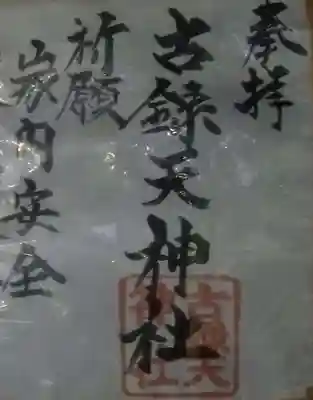 奉拝
古録天神社
祈願
家内安全